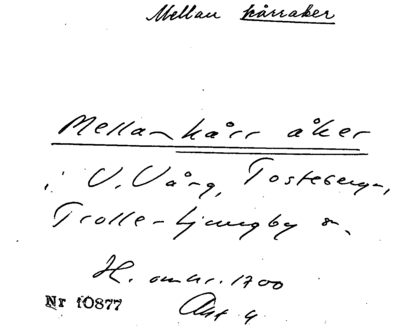 Mellan kårraker
Mellankårr åker
i V. Vång, Tosteberga,
Trolle-Ljungby s.
H. omkr. 1700
Nr 10877